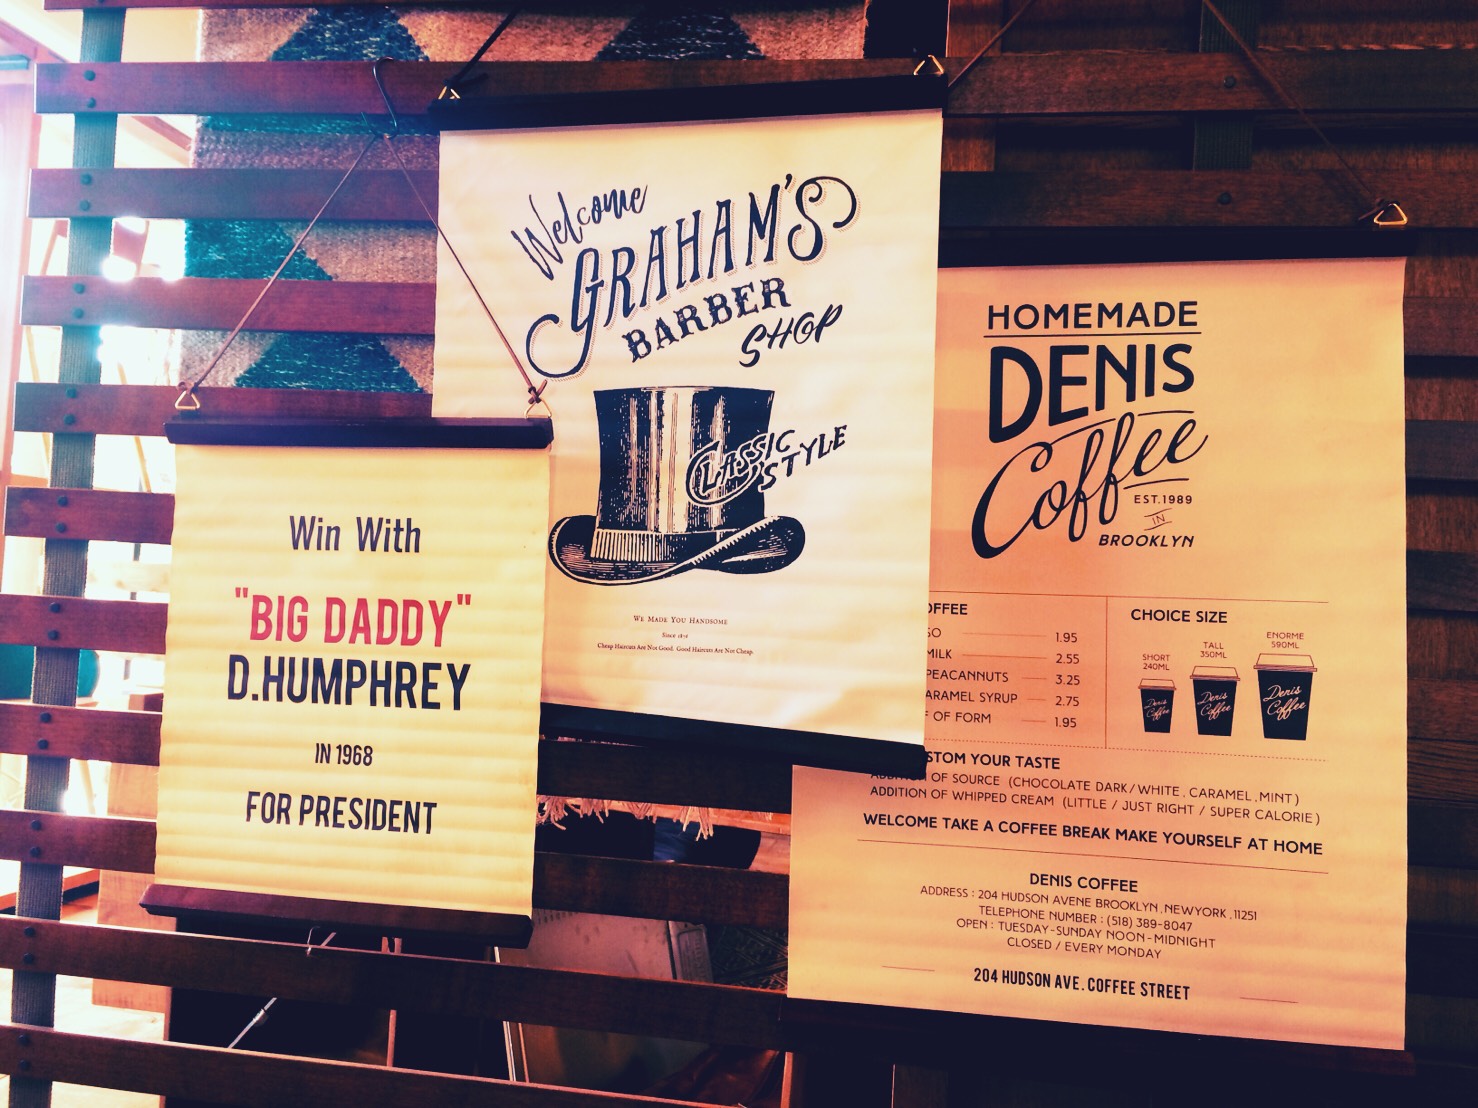 Win With
"BIG DADDY"
D.HUMPHREY
IN 1968
FOR PRESIDENT
Welcome
GRAHAM'S
BARBER
SHOP
CLASSIC
STYLE
WE MADE YOU HANDSOME
Since
Cheap Haircuts Are Not Good. Good Haircuts Are Not Cheap.
HOMEMADE
DENIS
Coffee
EST.1989
IN
BROOKLYN
OFFEE
SO 1.95
MILK 2.55
PEACANNUTS 3.25
ARAMEL SYRUP 2.75
F OF FORM 1.95
CHOICE SIZE
SHORT
240ML
TALL
350ML
ENORME
590ML
Denis
Coffee
Denis
Coffee
Denis
Coffee
STOM YOUR TASTE
ADDITION OF SOURCE (CHOCOLATE DARK/WHITE, CARAMEL, MINT)
ADDITION OF WHIPPED CREAM (LITTLE / JUST RIGHT / SUPER CALORIE)
WELCOME TAKE A COFFEE BREAK MAKE YOURSELF AT HOME
DENIS COFFEE
ADDRESS : 204 HUDSON AVENE BROOKLYN, NEWYORK, 11251
TELEPHONE NUMBER : (518) 389-8047
OPEN : TUESDAY-SUNDAY NOON-MIDNIGHT
CLOSED / EVERY MONDAY
204 HUDSON AVE. COFFEE STREET